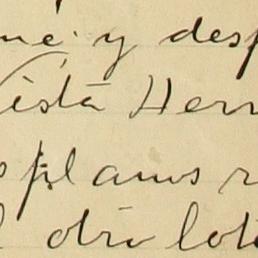 me y desp
Vista Herr
s planos r
l otro lote